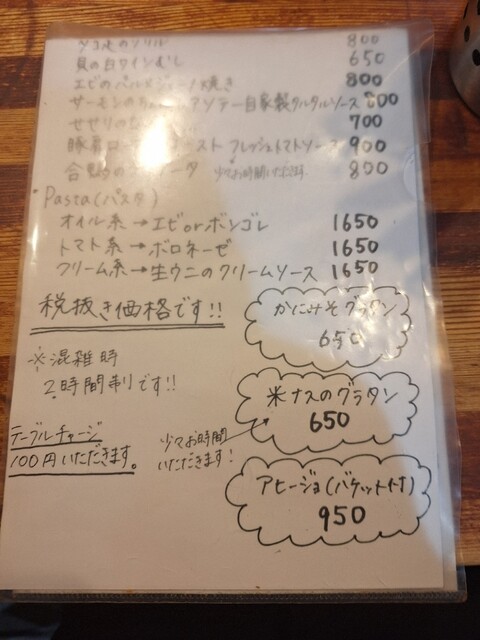 グリル 800
貝の白ワインむし 650
エビのパルメジャーノ焼き 800
サーモンの ソテー自家製タルタルソース 800
せせりの 700
豚肩ロース ースト フレッシュトマトソース 900
合鴨の 少々お時間いただきます 800
Pasta(パスタ)
オイル系→エビorボンゴレ 1650
トマト系→ボロネーゼ 1650
クリーム系→生ウニのクリームソース 1650
税抜き価格です!!
かにみそグラタン
650
※混雑時
2時間制です!!
米ナスのグラタン
650
テーブルチャージ
100円いただきます。
少々お時間
いただきます!
アヒージョ(バケット付)
950